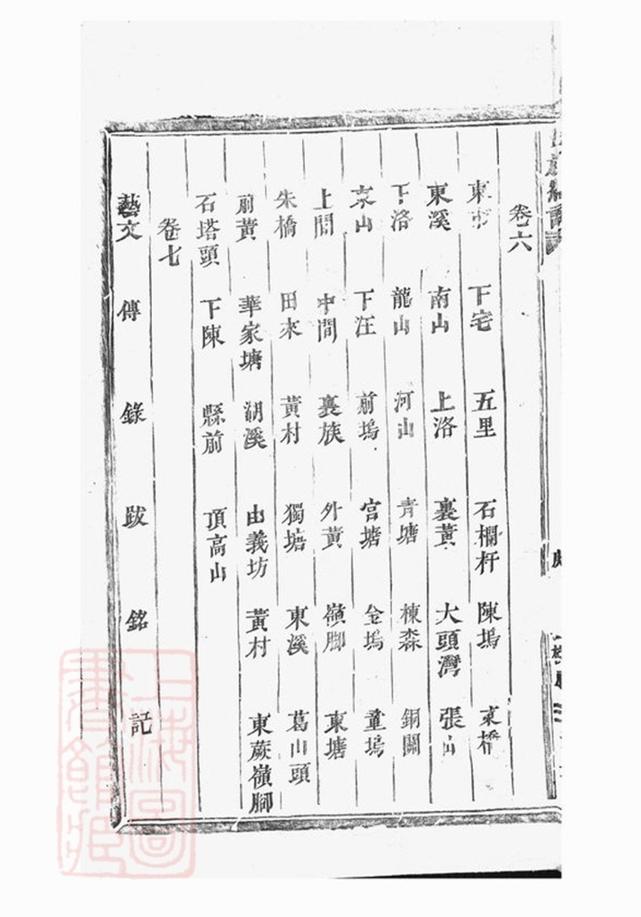 卷六
東 下宅 五里 石欄杆 陳塢 東橋
東溪 南山 上洛 裏黃 大頭灣 張山
下洛 龍山 河山 青塘 棟森 銅關
東山 下汪 前塢 宮塘 金塢 童塢
上間 中間 裏族 外黃 嶺脚 東塘
朱橋 田來 黃村 獨塘 東溪 葛山頭
前黃 華家塘 湖溪 由義坊 黃村 東蕨嶺腳
石塔頭 下陳 縣前 頂高山
卷七
藝文 傳 錄 跋 銘 記
上海圖書館藏